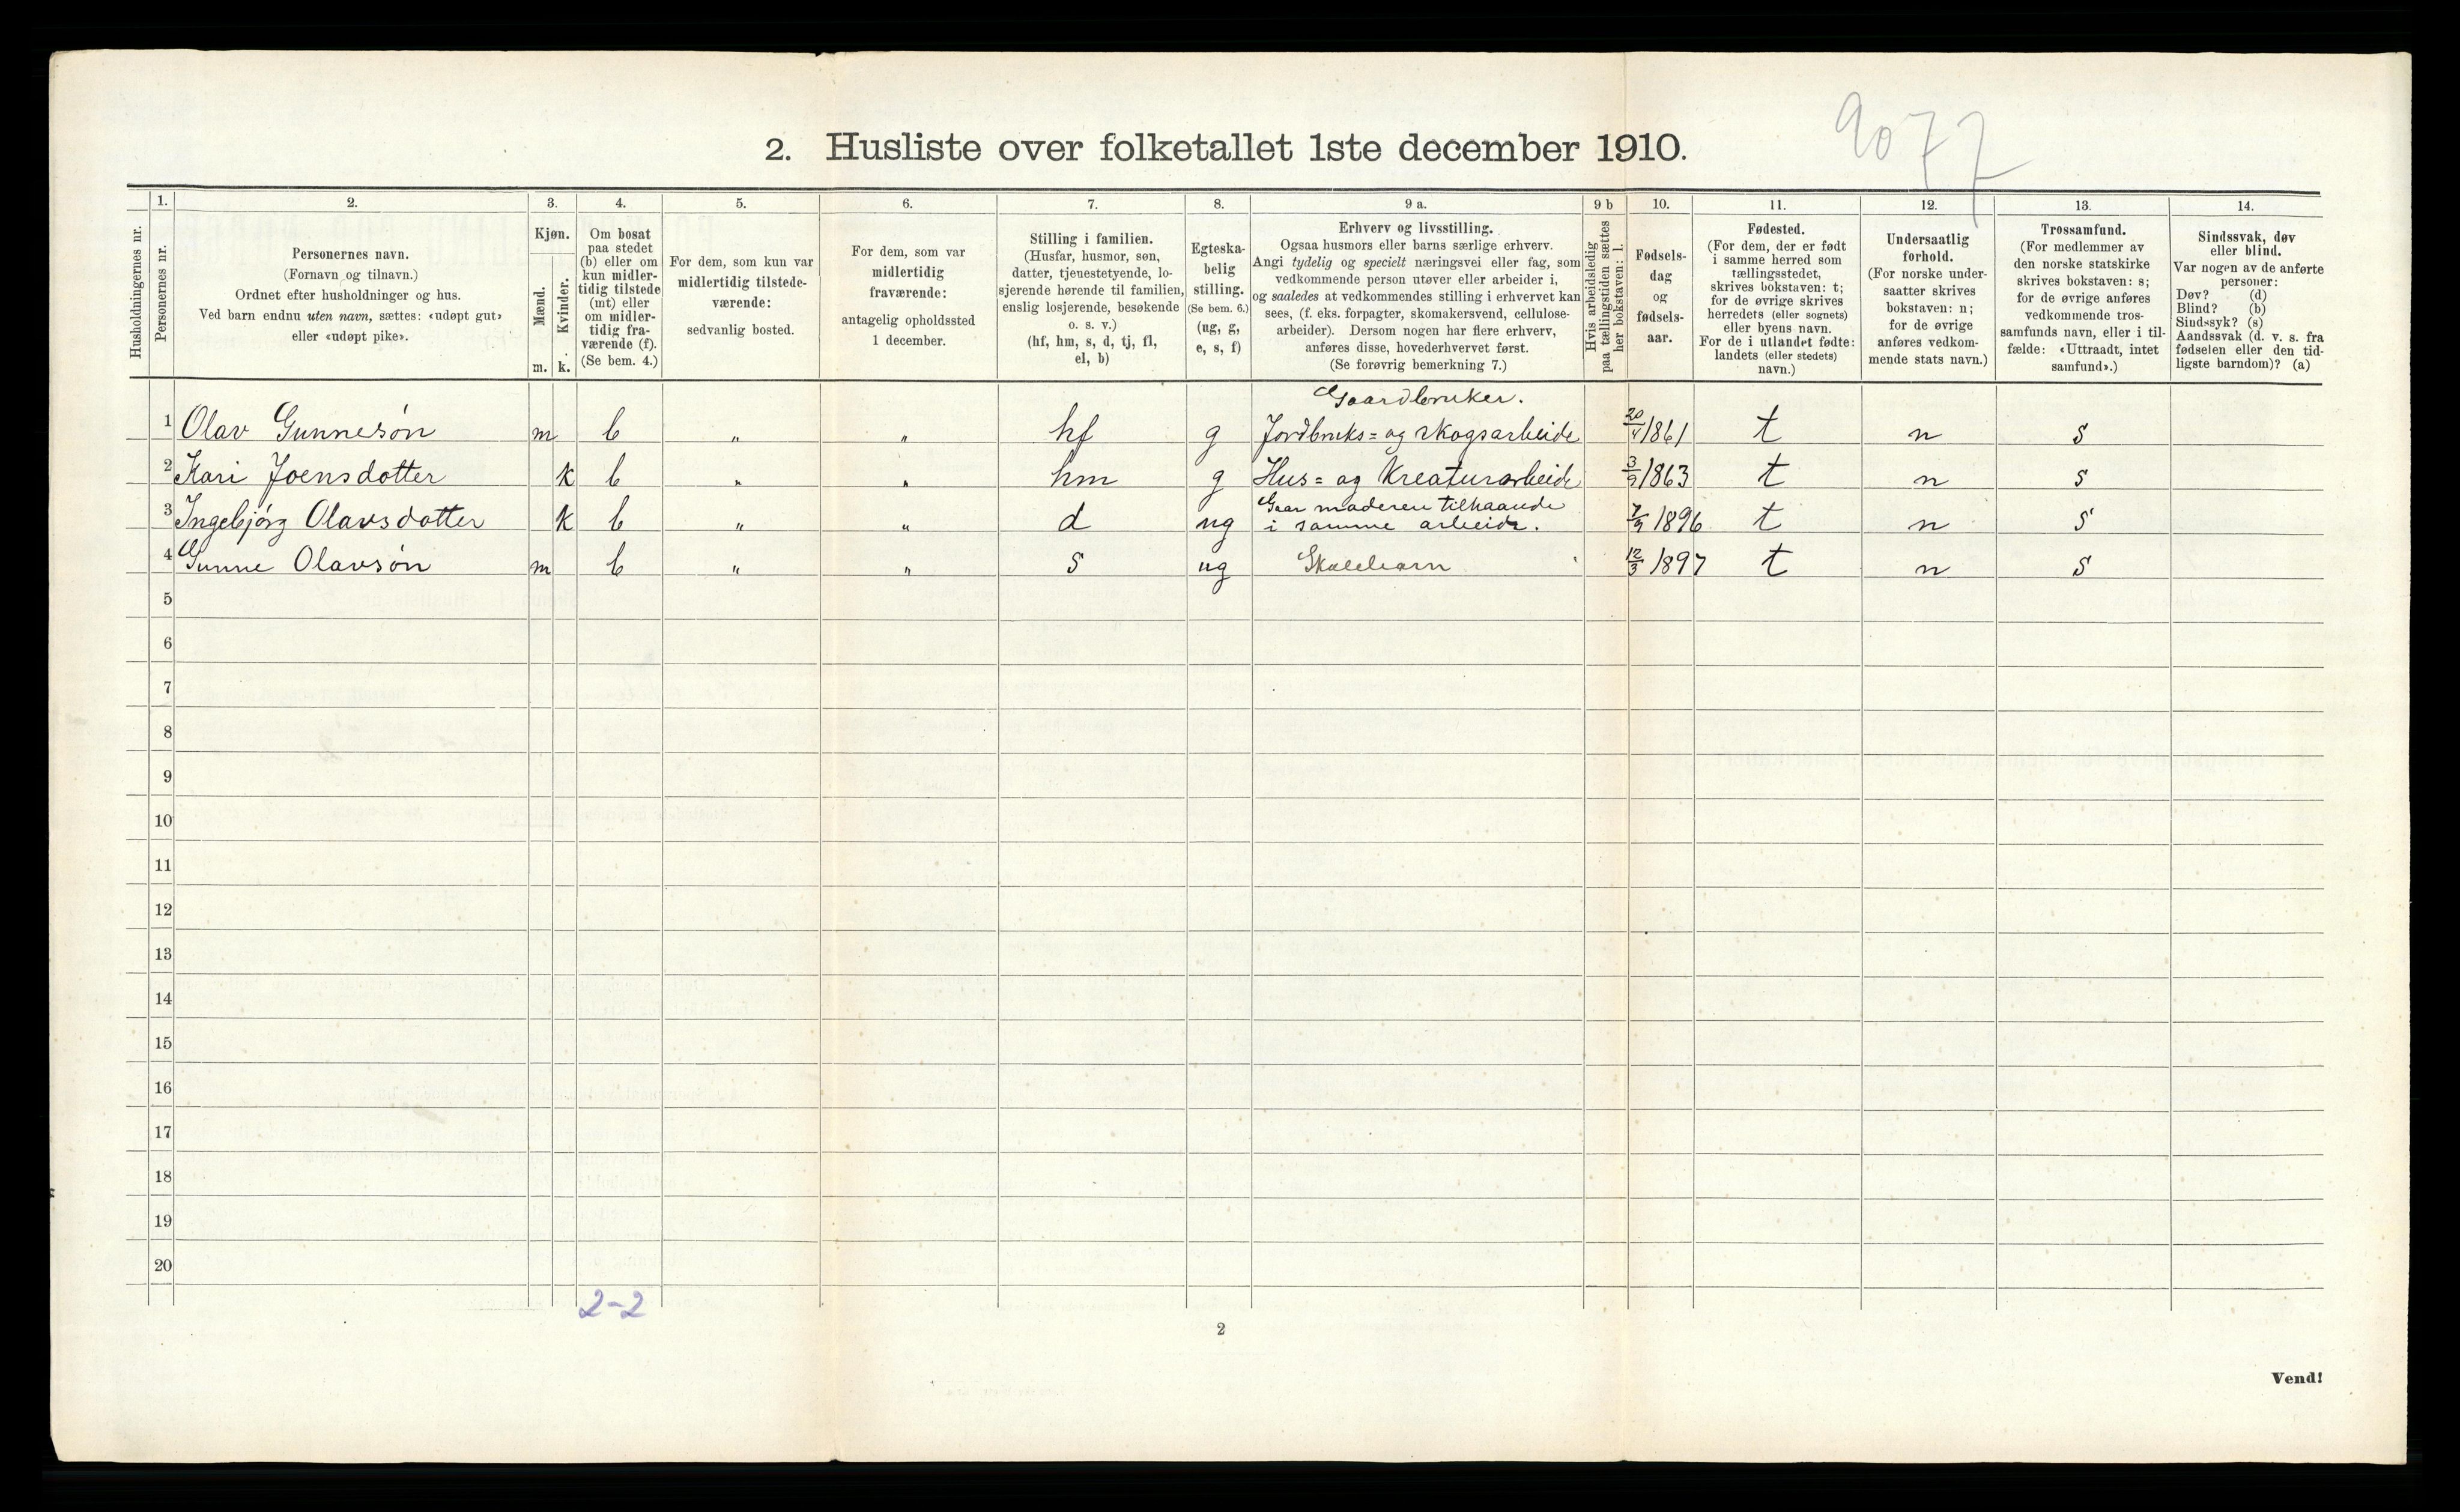 9077
2. Husliste over folketallet 1ste december 1910.
Husholdningernes nr.
1.
Personernes nr.
2.
Personernes navn.
(Fornavn og tilnavn.)
Ordnet efter husholdninger og hus.
Ved barn endnu uten navn, sættes: «udøpt gut»
eller «udøpt pike».
3.
Kjøn.
Mænd.
Kvinder.
m. k.
4.
Om bosat
paa stedet
(b) eller om
kun midler-
tidig tilstede
(mt) eller
om midler-
tidig fra-
værende (f).
(Se bem. 4.)
5.
For dem, som kun var
midlertidig tilstede-
værende:
sedvanlig bosted.
6.
For dem, som var
midlertidig
fraværende:
antagelig opholdssted
1 december.
7.
Stilling i familien.
(Husfar, husmor, søn,
datter, tjenestetyende, lo-
sjerende hørende til familien,
enslig losjerende, besøkende
o. s. v.)
(hf, hm, s, d, tj, fl,
el, b)
8.
Egteska-
belig
stilling.
(Se bem. 6.)
(ug, g,
e, s, f)
9 a.
Erhverv og livsstilling.
Ogsaa husmors eller barns særlige erhverv.
Angi tydelig og specielt næringsvei eller fag, som
vedkommende person utøver eller arbeider i,
og saaledes at vedkommendes stilling i erhvervet kan
sees, (f. eks. forpagter, skomakersvend, cellulose-
arbeider). Dersom nogen har flere erhverv,
anføres disse, hovederhvervet først.
(Se forøvrig bemerkning 7.)
9 b
Hvis arbeidsledig
paa tællingstiden sættes
her bokstaven: l.
10.
Fødsels-
dag
og
fødsels-
aar.
11.
Fødested.
(For dem, der er født
i samme herred som
tællingsstedet,
skrives bokstaven: t;
for de øvrige skrives
herredets (eller sognets)
eller byens navn.
For de i utlandet fødte:
landets (eller stedets)
navn.)
12.
Undersaatlig
forhold.
(For norske under-
saatter skrives
bokstaven: n;
for de øvrige
anføres vedkom-
mende stats navn.)
13.
Trossamfund.
(For medlemmer av
den norske statskirke
skrives bokstaven: s;
for de øvrige anføres
vedkommende tros-
samfunds navn, eller i til-
fælde: «Uttraadt, intet
samfund».)
14.
Sindssvak, døv
eller blind.
Var nogen av de anførte
personer:
Døv? (d)
Blind? (b)
Sindssyk? (s)
Aandssvak (d. v. s. fra
fødselen eller den tid-
ligste barndom)? (a)
Gaardbruker.
1 Olav Gunnesøn m b " " hf g Jordbruks= og skogsarbeide 20/4 1861 t n s
2 Kari Joensdotter k b " " hm g Hus= og Kreaturarbeide 3/9 1863 t n s
Gaar moderen tilhaande
3 Ingebjørg Olavsdotter k b " " d ug i samme arbeide. 7/9 1896 t n s
4 Gunne Olavsøn m b " " s ug Skolebarn 12/3 1897 t n s
5
6
7
8
9
10
11
12
13
14
15
16
17
18
19
20
2-2
2
Vend!